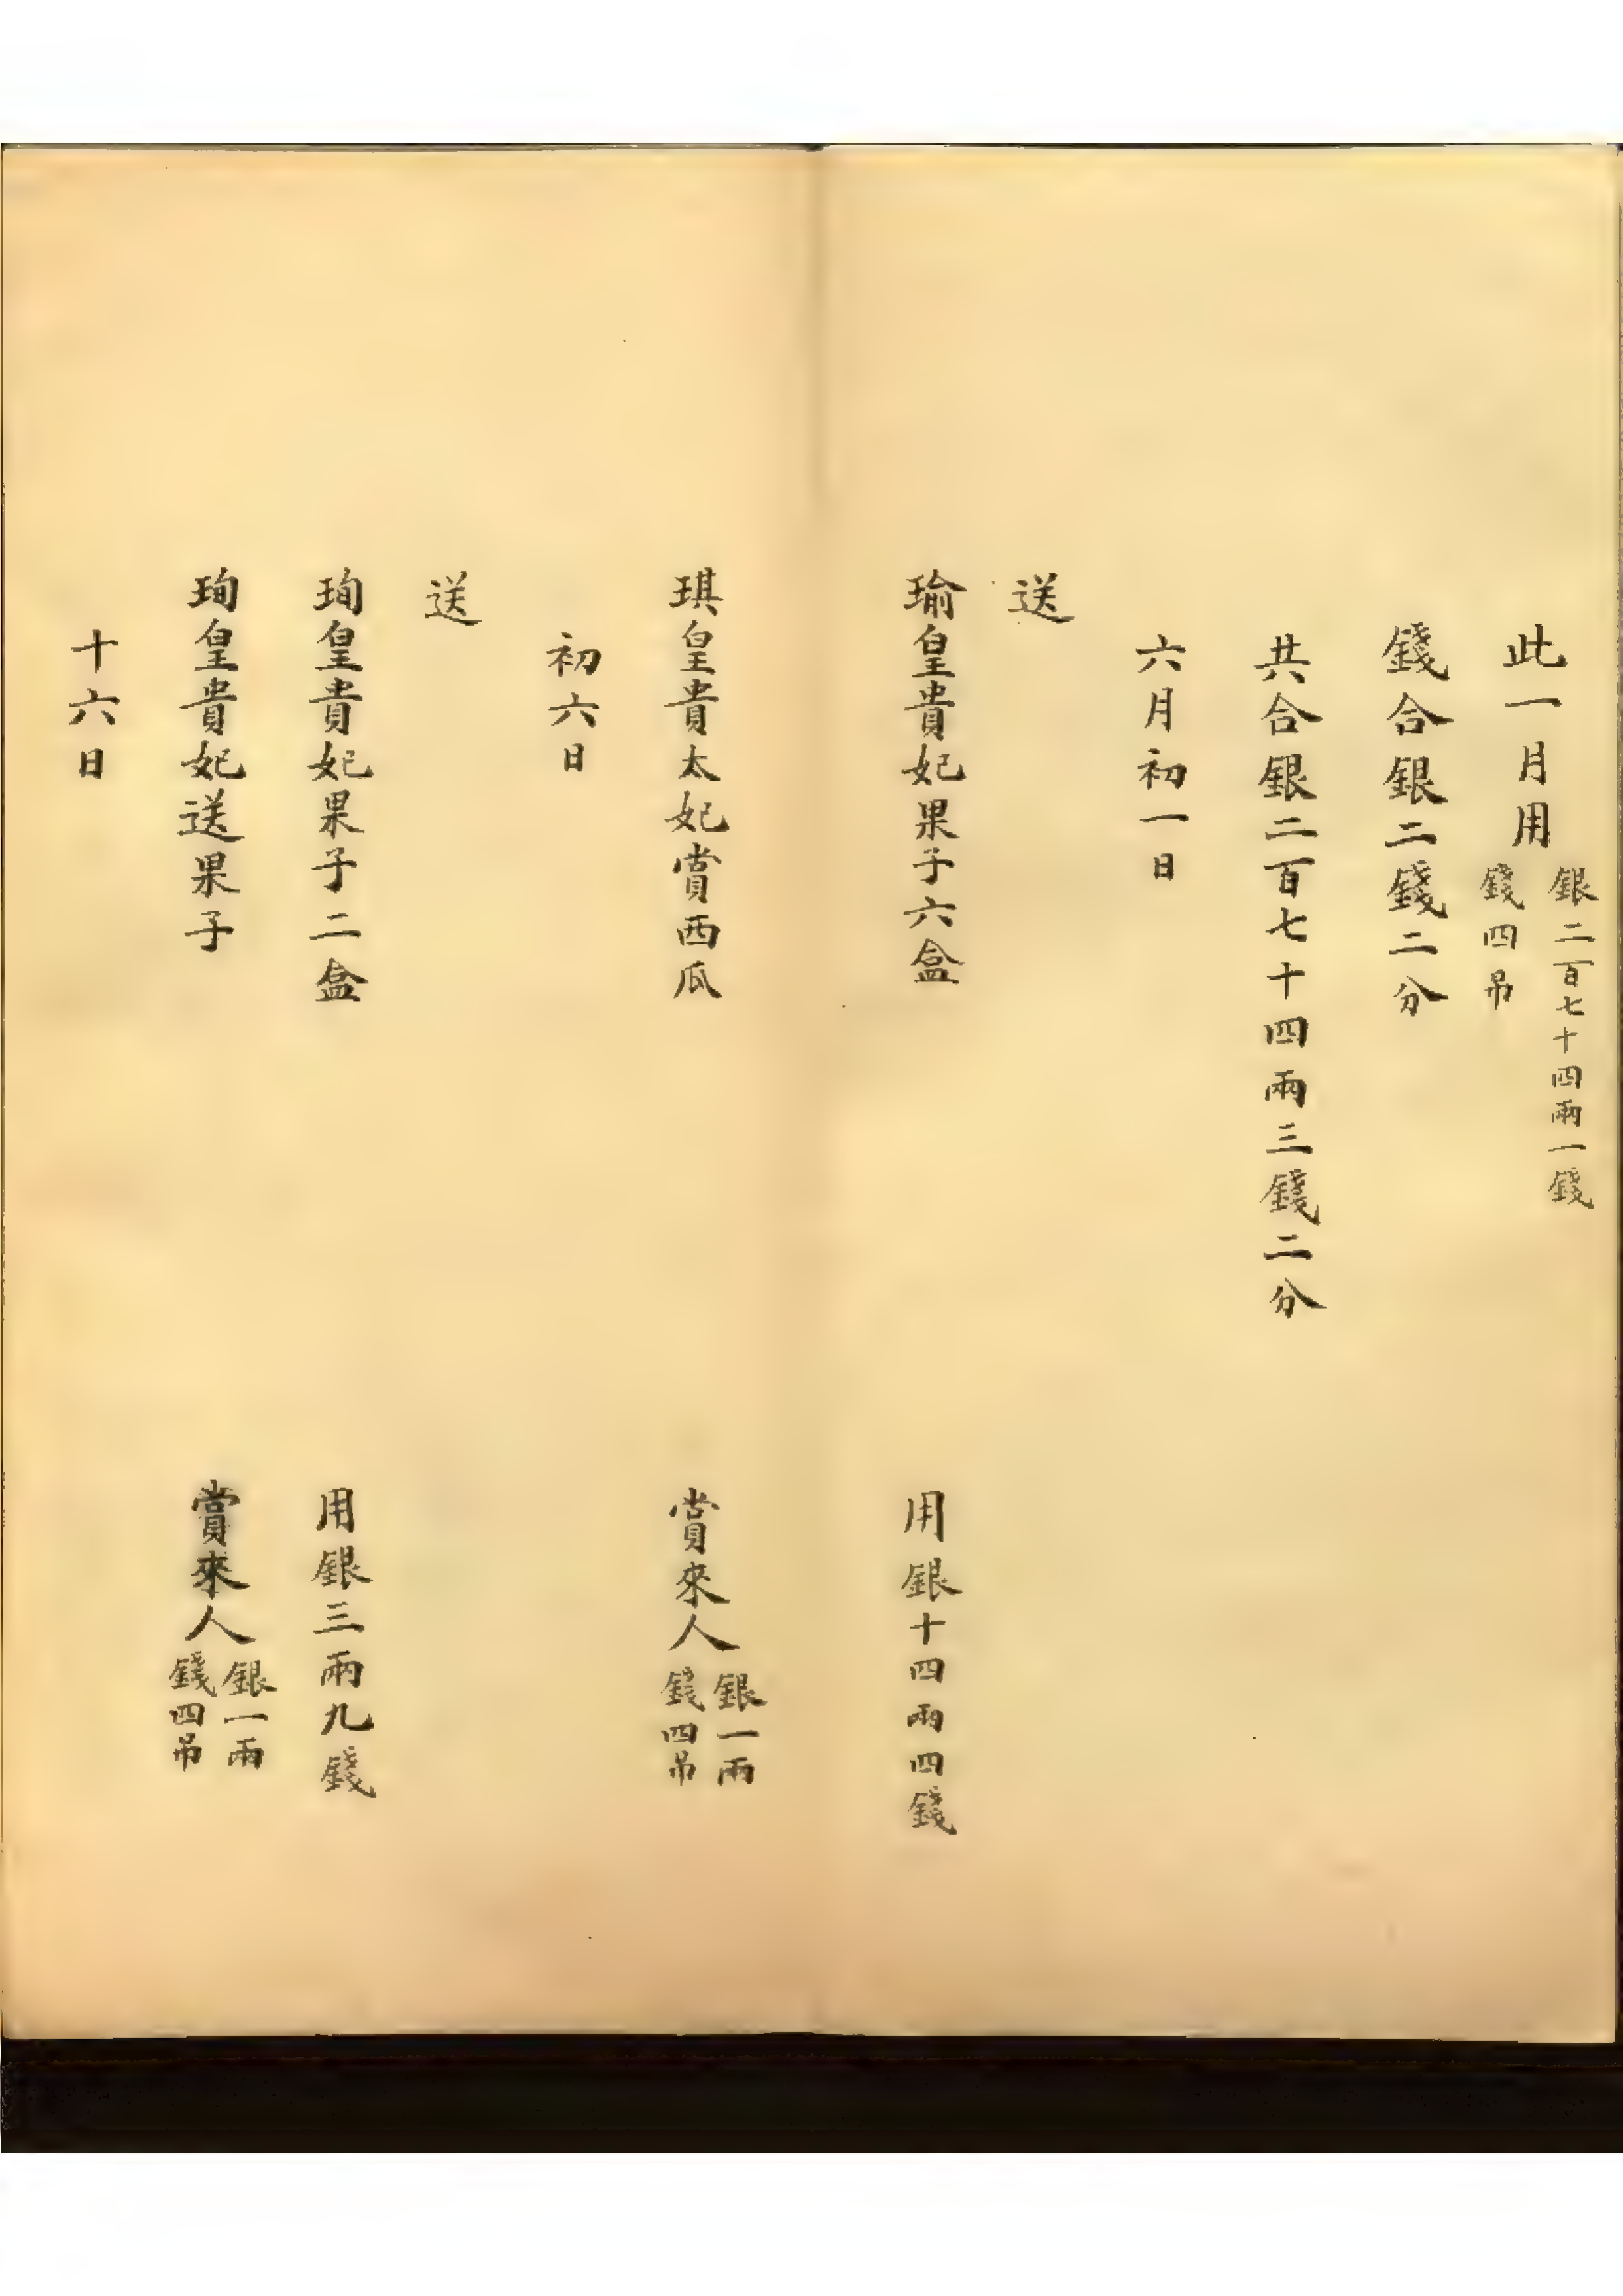 此一月用銀二百七十四兩一錢錢四吊
錢合銀二錢二分
共合銀二百七十四兩三錢二分
六月初一日
送
瑜皇貴妃果子六盒 用銀十四兩四錢
琪皇貴太妃賞西瓜 賞來人銀一兩錢四吊
初六日
送
珣皇貴妃果子二盒 用銀三兩九錢
珣皇貴妃送果子 賞來人銀一兩錢四吊
十六日